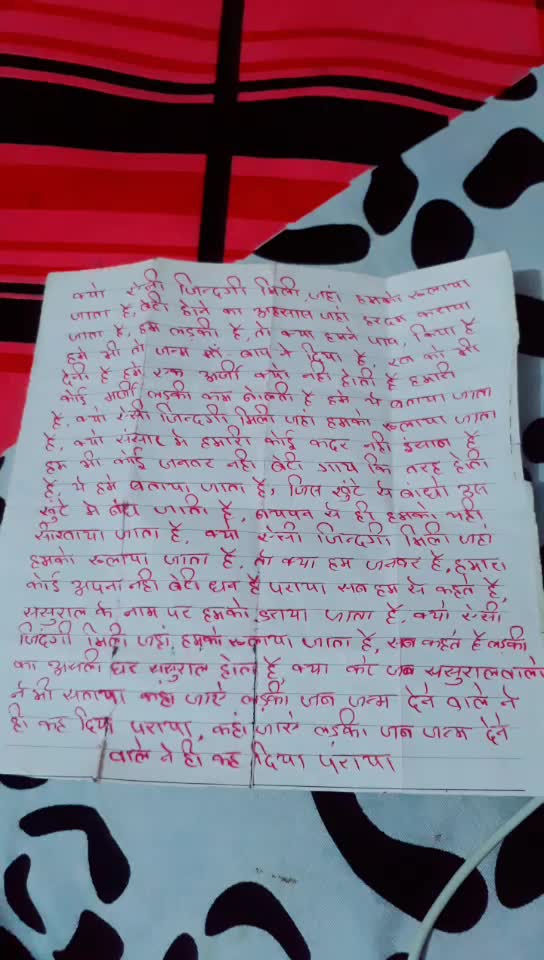 क्यो ऐसी जिन्दगी मिली, जहां हमको रूलाया
जाता है, बेटी होने का अहसास जहां हरदम कराया
जाता है, हम लड़की है, तो क्या हमने पाप, किया है
हमे भी तो जन्म माँ-बाप ने दिया है, रब को भी
देनी है हमे रूक अर्जी क्यो नही होती है हमारी
कोई मर्जी लड़की कम बोलती है हमे ये बताया जाता
है, क्यो ऐसी जिन्दगी मिली जहां हमको रूलाया जाता
है, क्यो संसार मे हमारी कोई कदर नही इंसान है
हम भी कोई जनवर नही बेटी गाय कि तरह होती
है, ये हमे बताया जाता है, जिस खुंटे से बांधो उस
खुंटे मे बंधी जाती है, बचपन से ही हमको यही
सीखाया जाता है, क्यो ऐसी जिन्दगी मिली जहां
हमको रूलाया जाता है, तो क्या हम जनवर है, हमारा
कोई अपना नही बेटी धन है पराया सब हम से कहते है,
ससुराल के नाम पर हमको डराया जाता है, क्यो ऐसी
जिंदगी मिली जहां हमको रूलाया जाता है, सब कहते है लड़की
का असली घर ससुराल होता है, क्या करे जब ससुरालवालो
ने भी सताया कहा जाऐ लड़की जब जन्म देने वाले ने
ही कह दिया पराया, कहां जाऐ लड़की जब जन्म देने
वाले ने ही कह दिया पराया